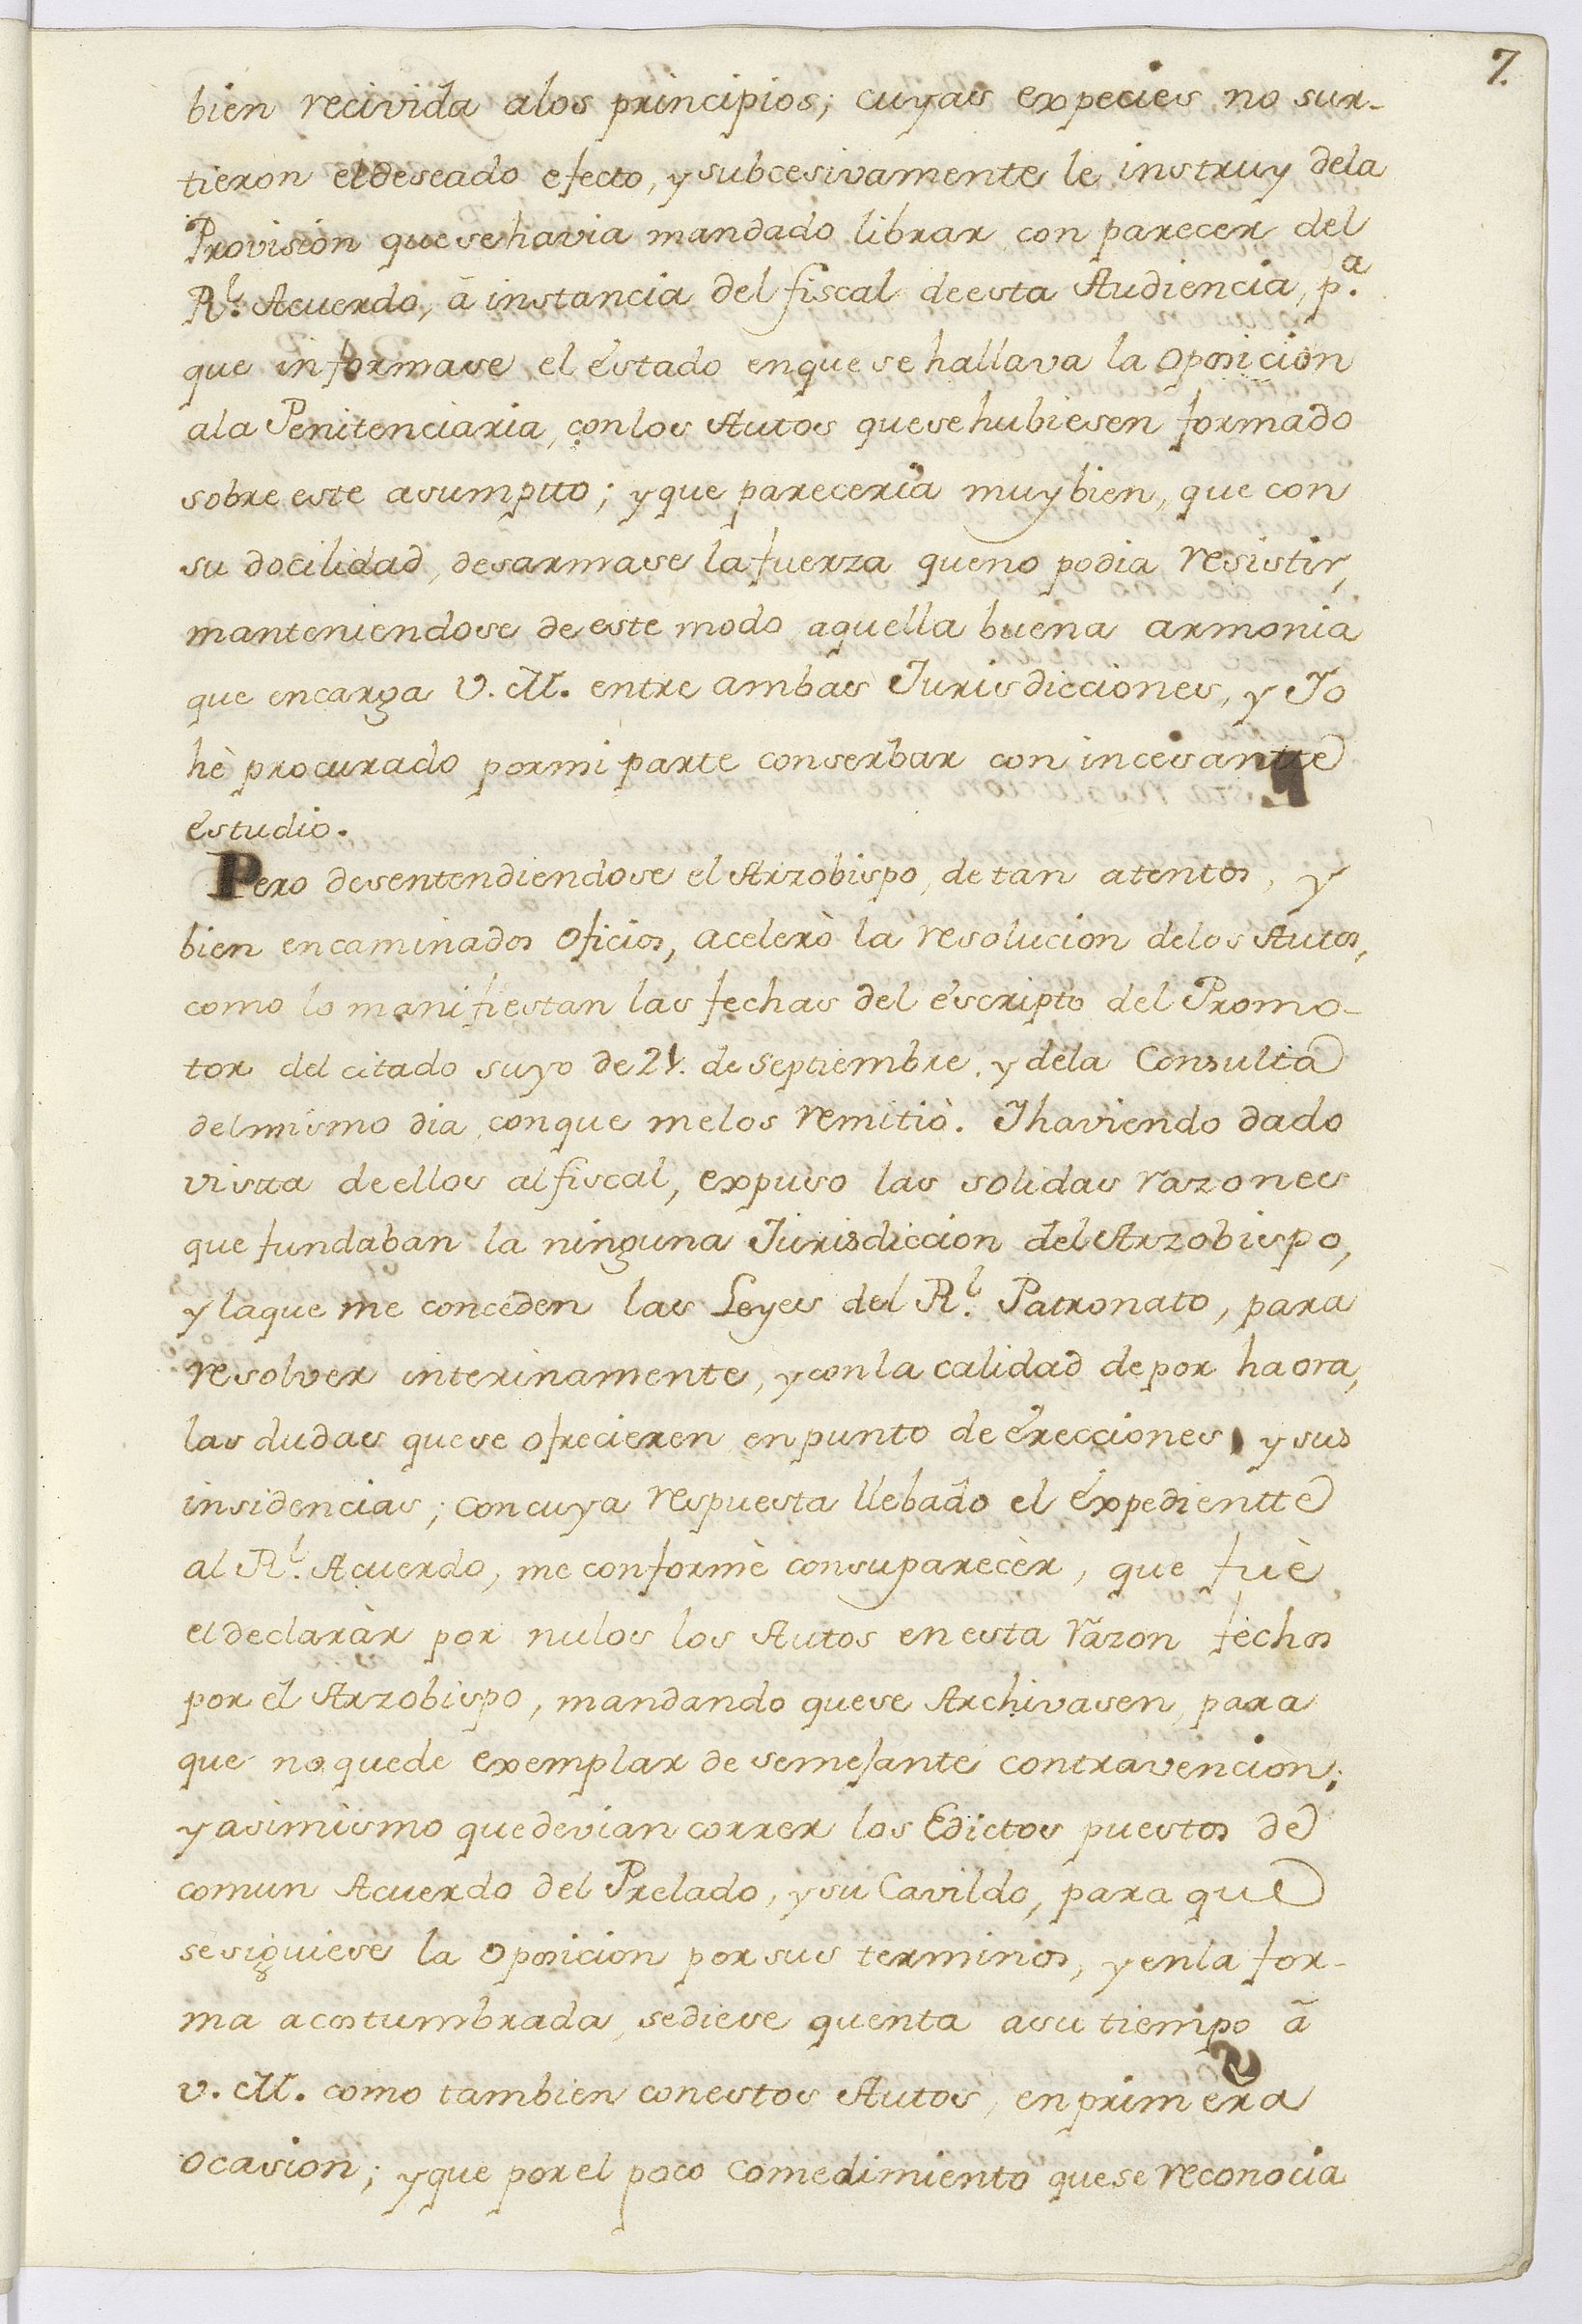 7.
bien recivida alos principios; cuyas expecies no sur-
tieron el deseado efecto, y subcesivamente le instruy dela
Provision que se havia mandado librar con parecer del
Rl. Acuerdo, â instancia del fiscal de esta Audiencia, pa.
que informase el estado en que se hallava la oposicion
ala Penitenciaria, con los Autos que se hubiesen formado
sobre este asumptto; y que pareceria muy bien, que con
su docilidad, desarmase la fuerza que no podia resistir,
manteniendose de este modo aquella buena armonia
que encarga V. M. entre ambas Jurisdicciones, y Yo
hè procurado por mi parte conserbar con incesantte
estudio.
Pero desentendiendose el Arzobispo, de tan atentos, y
bien encaminados oficios, acelerò la resolucion delos Autos,
como lo manifiestan las fechas del escripto del Promo-
tor del citado suyo de 21. de septiembre, y dela Consulta
del mismo dia, con que melos remitiò. Y haviendo dado
vistta de ellos al fiscal, expuso las solidas razones
que fundaban la ninguna Jurisdiccion del Arzobispo,
y la que me conceden las Leyes del Rl. Patronato, para
resolver interinamente, y con la calidad de por haora,
las dudas que se ofrecieren en punto de erecciones, y sus
insidencias; con cuya respuesta llebado el expedientte
al Rl. Acuerdo, me conformè con su parecèr, que fuè
el declaràr por nulos los Autos en esta razon fechos
por el Arzobispo, mandando que se Archivasen, para
que no quede exemplar de semejante contravencion;
y asimismo que devian correr los Edictos puestos de
comun Acuerdo del Prelado, y su Cavildo, para que
se siguiese la oposicion por sus terminos, y en la for-
ma acostumbrada, se diese quenta a su tiempo â
V. M. como tambien con estos Autos, en primera
ocasion; y que por el poco comedimiento que se reconocia